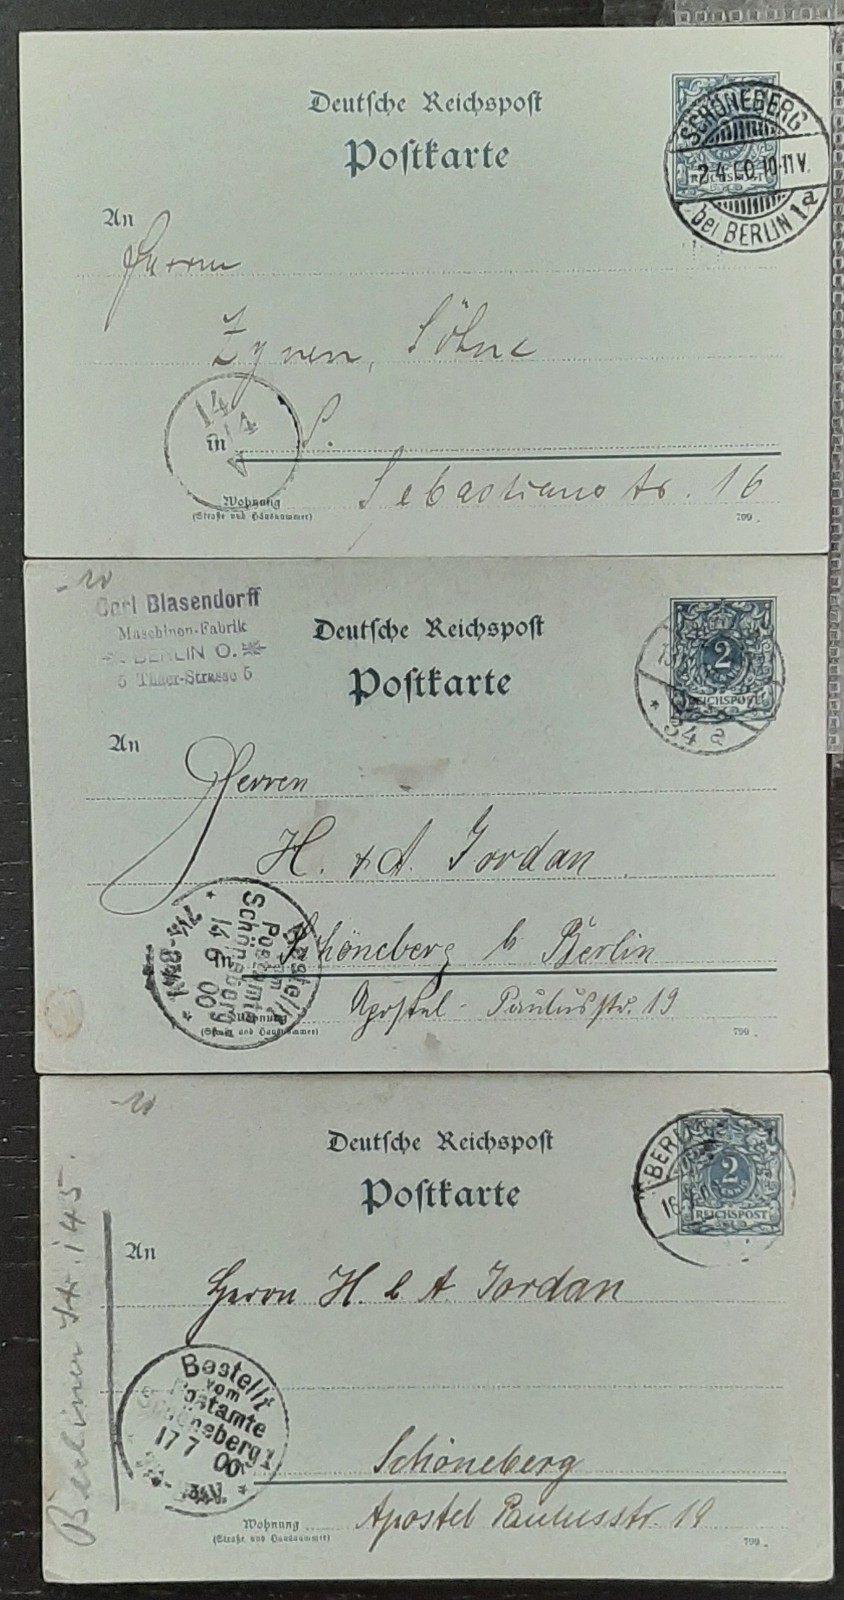 Deutsche Reichspost
Postkarte
SCHÖNEBERG
2.4.00.10-11V.
bei BERLIN 1a
REICHSPOST
An
Herrn
Zynen, Söhne
S.
in
14
4
Sebastianstr. 16
Wohnung
(Straße und Hausnummer)
799.
Carl Blasendorff
Maschinen-Fabrik
BERLIN O.
5 Strasse 5
Deutsche Reichspost
Postkarte
2
REICHSPOST
* 34 a
An
Herren
H. & A. Jordan
in Schöneberg b Berlin
Apostel-Paulusstr. 19
Bestellt
vom
Postamte
Schöneberg 1
14 6 00
Wohnung
(Straße und Hausnummer)
799.
Deutsche Reichspost
Postkarte
BERLIN
2
REICHSPOST
An
Herrn H. & A. Jordan
Schöneberg
Apostel Paulusstr. 19
Bestellt
vom
Postamte
Schöneberg 1
17 7 00
Wohnung
(Straße und Hausnummer)
799.
Berliner Str. 145.